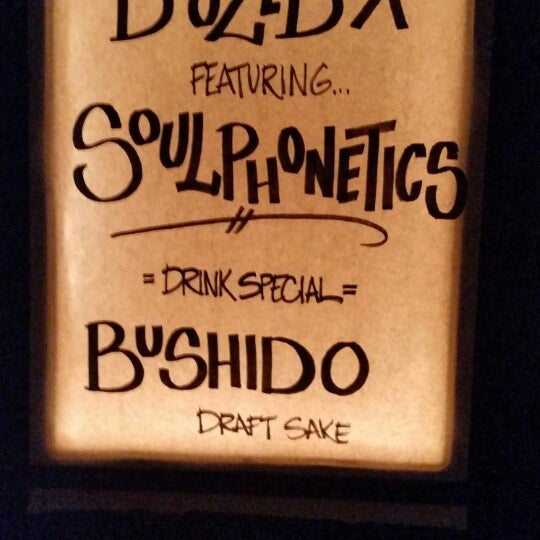 FEATURING...
SOULPHONETICS
= DRINK SPECIAL =
BUSHIDO
DRAFT SAKE